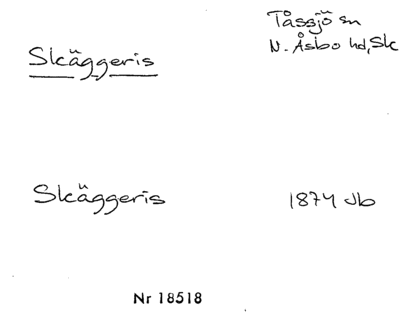 Tåssjö sn
Skäggeris
N. Åsbo hd, Sk
Skäggeris
1874 Jb
Nr 18518